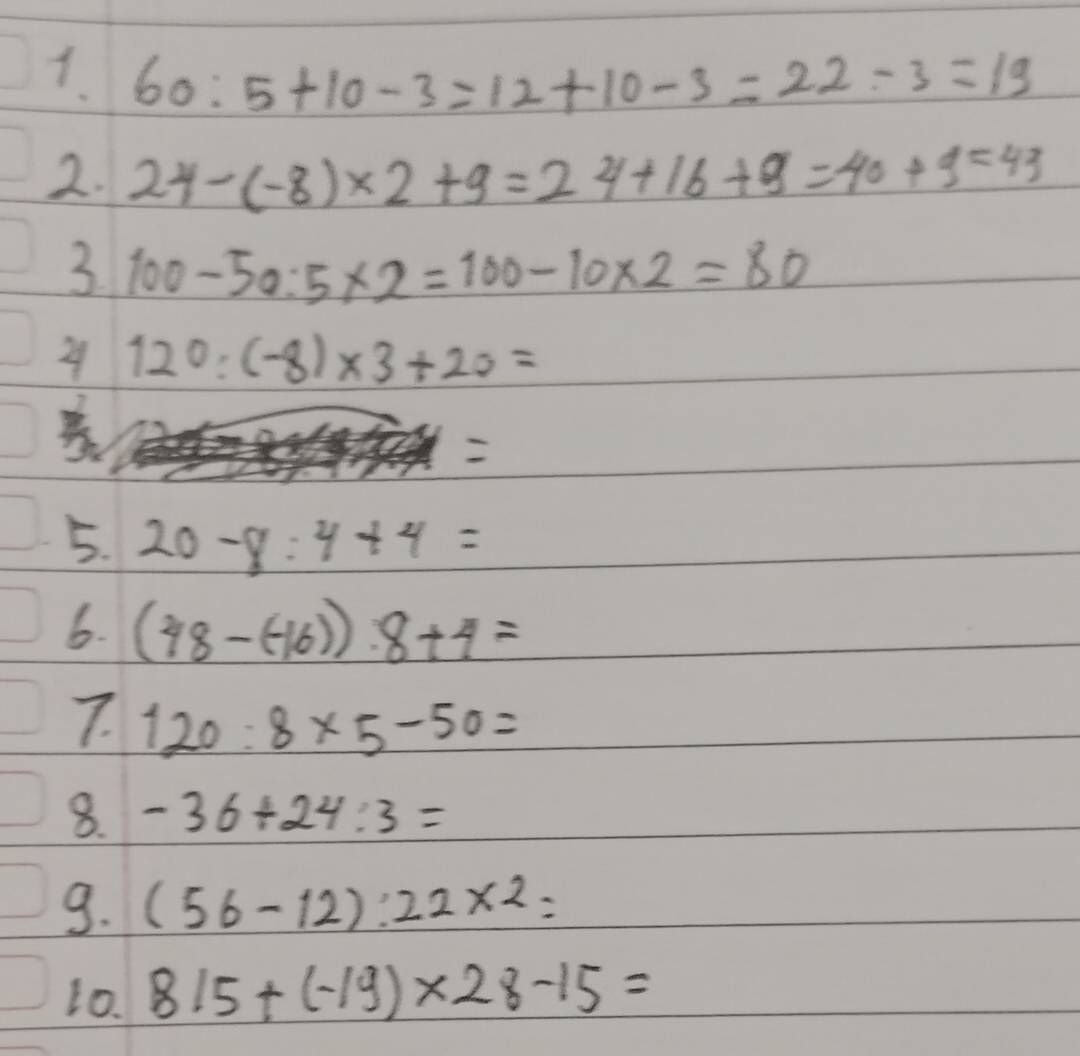 1. 60 : 5 + 10 - 3 = 12 + 10 - 3 = 22 - 3 = 19
2. 24 - (-8) × 2 + 9 = 24 + 16 + 9 = 40 + 9 = 49
3. 100 - 50 : 5 × 2 = 100 - 10 × 2 = 80
4 120 : (-8) × 3 + 20 =
=
5. 20 - 8 : 4 + 4 =
6. (48 - (-16)) : 8 + 4 =
7. 120 : 8 × 5 - 50 =
8. - 36 + 24 : 3 =
9. (56 - 12) : 22 × 2 =
10. 815 + (-19) × 28 - 15 =